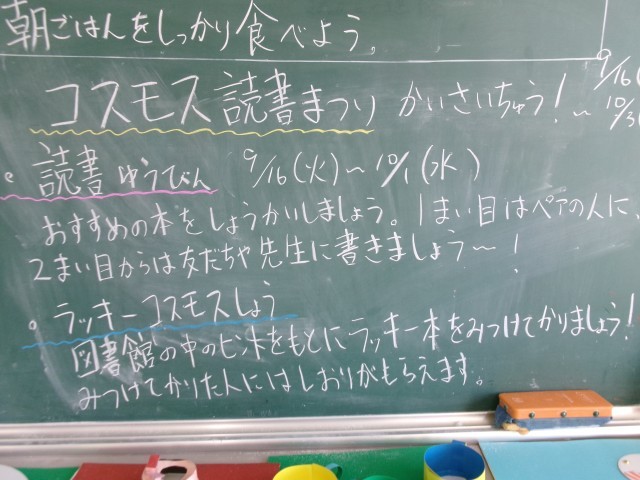 朝ごはんをしっかり食べよう。
コスモス読書まつり かいさいちゅう!~ 9/16(
10/3
読書ゆうびん 9/16(火)~10/1(水)
おすすめの本をしょうかいしましょう。1まい目はペアの人に、
2まい目からは友だちや先生に書きましょう~!
ラッキーコスモスしょう
図書館の中のヒントをもとにラッキー本をみつけてかりましょう!
みつけてかりた人にはしおりがもらえます。